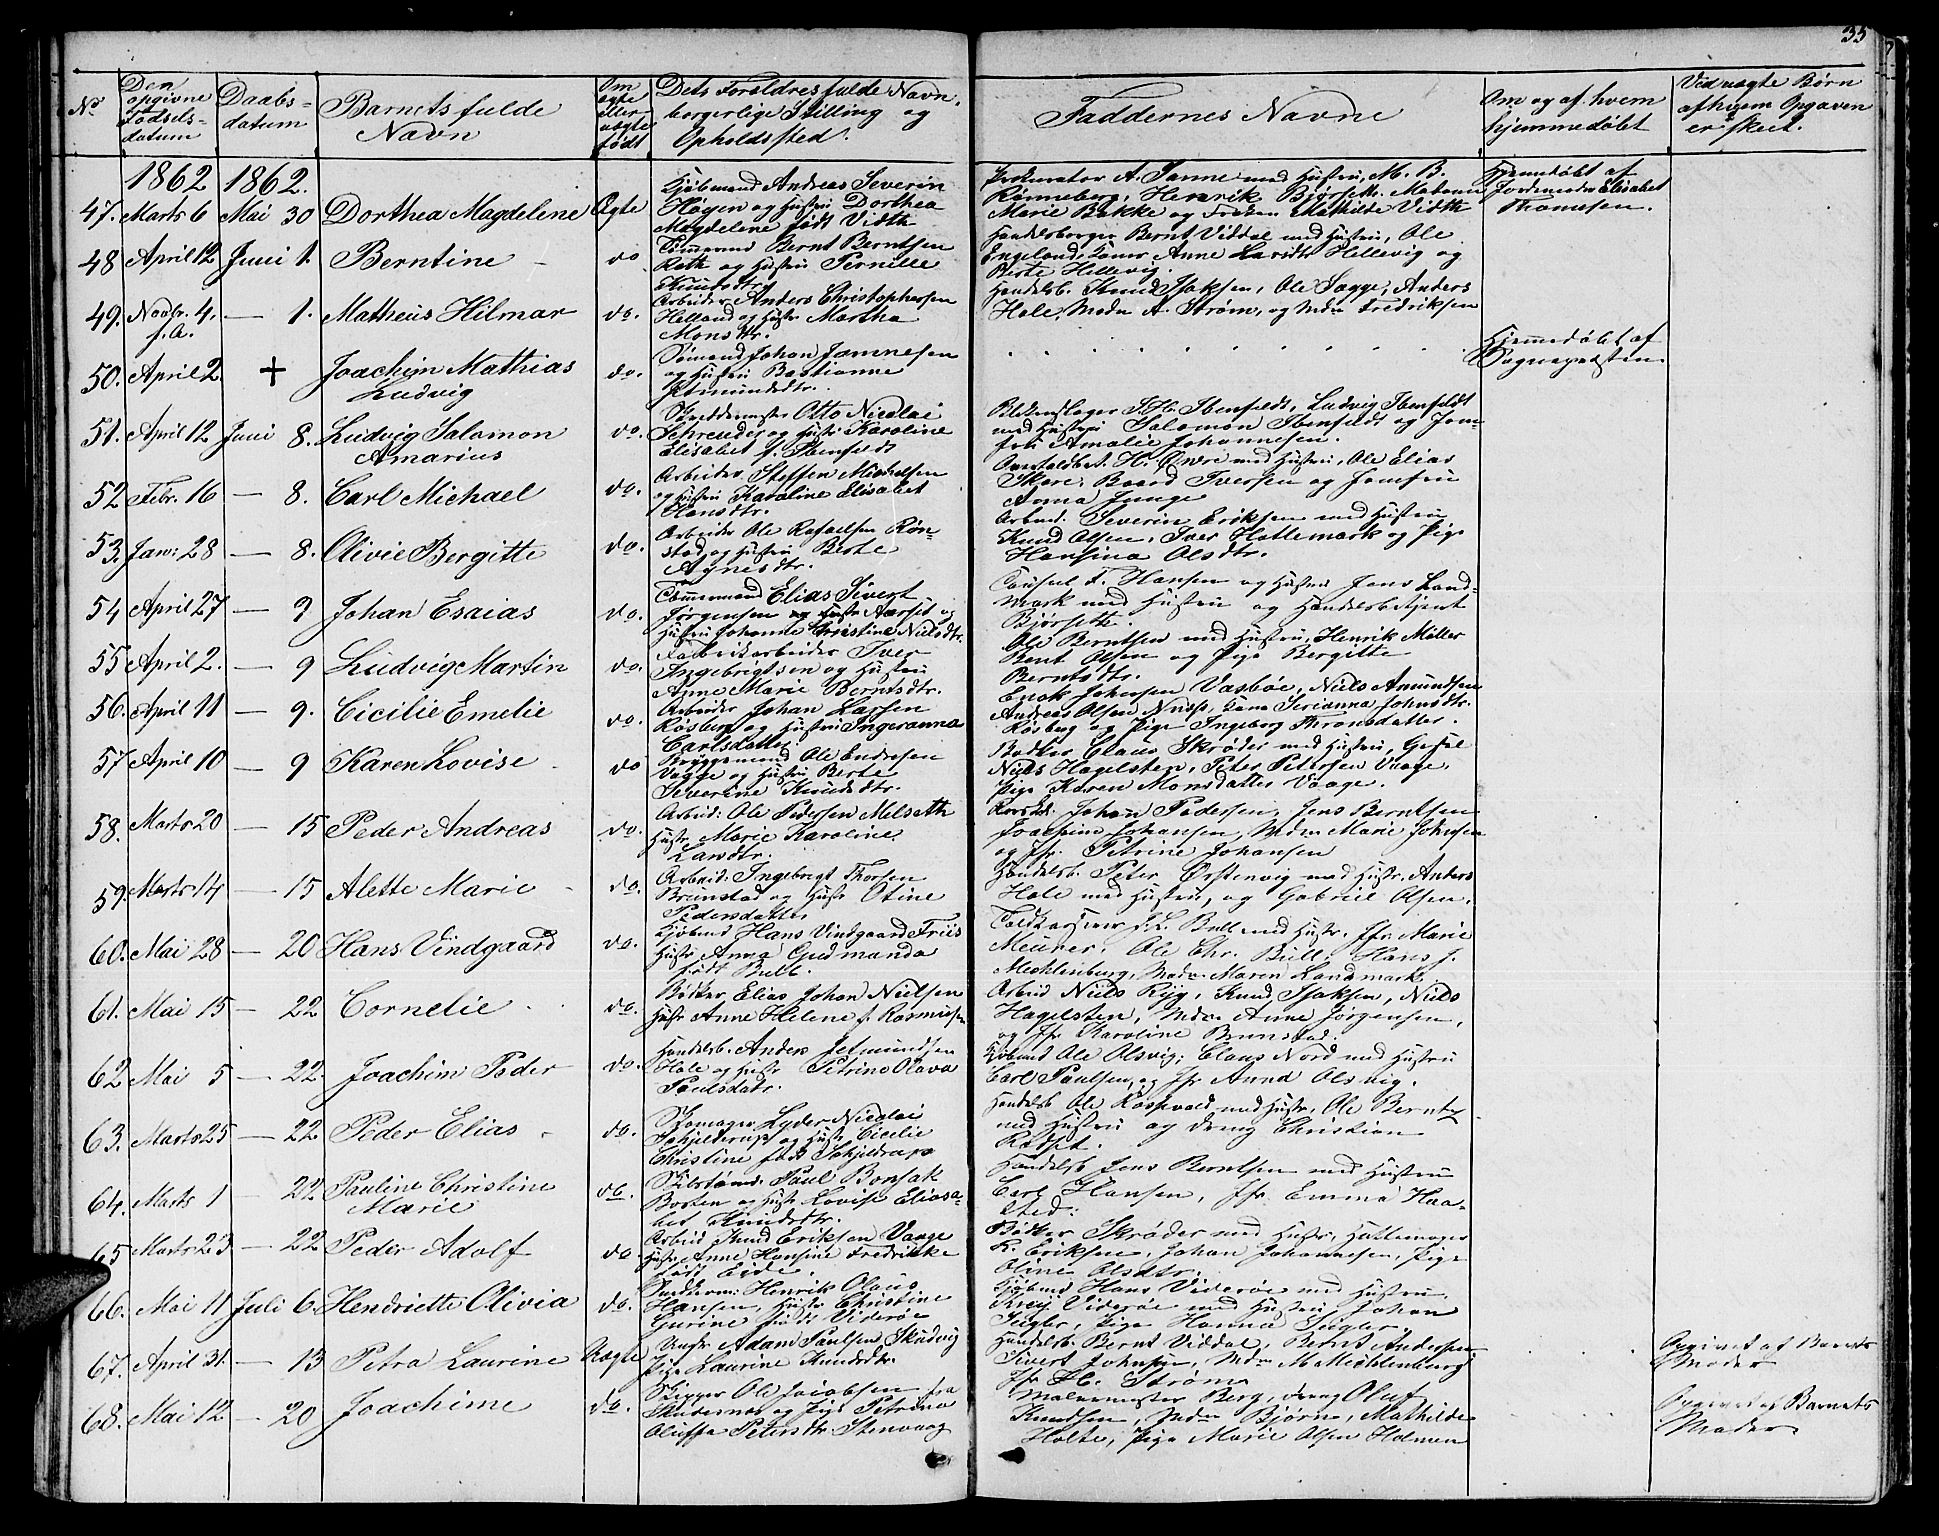 35
No
Den opgivne Fødsels-datum
Daabs-datum
Barnets fulde Navn
Om ægte eller uægte født
Dets Foreldres fulde Navn, borgerlige Stilling og Opholdssted.
Faddernes Navne
Om og af hvem hjemmedøbt
Ved uægte Børn af hvem Opgaven er skeet.
1862 1862.
47. Marts 6 Mai 30 Dorthea Magdelene Ægte
Kjøbmand Andreas Severin
Høyen og Hustru Dorthea
Magdelene født Vidth
Prokurator A. Sanne med Hustru, M. B.
Rønneberg, Henrik Bjørset.
Marie Bakke og Frøken Mathilde Vidth
Hjemmedøbt af
Jordemoder Elisabet
Thomesen.
48 April 12 Juni 1. Berntine do
Bernt Berntsen
og Hustru Pernille
Knudsdtr.
Handelsborger Bernt Viddal med Hustru, Ole
Engeland, Anne Hellevig og
Berte Hellevig.
49. Novbr. 4. f. A. — 1. Matheus Hilmar do.
Arbeider Anders Christophersen
Helland og Hustr. Martha
Monsdtr.
Handelsb. Knud Isaksen, Ole Sagge, Anders
Hole, Mdm A. Strøm, og Mdm Fredriksen
50. April 2. + Joachim Mathias
Ludvig do.
Sømand Johan Jamnesen
og Hustru Bastianne
Hjemmedøbt af
Sognepræsten.
51. April 12 Juni 8. Ludvig Salomon
Amarius do.
Skreddermester Otto Nicolai
Schreuder og Hustr. Karoline
Elisabet f. Ibenfeldt
Blikkenslager Ibenfeldt, Ludvig Ibenfeldt
med Hustru Salomon Ibenfeldt og Jom-
fru Amalie Johannesen.
52 Febr. 16 — 8. Carl Michael do.
Arbeider Steffen Michelsen
og Hustru Karoline Elisabet
Hansdtr.
H. Owre med Hustru, Ole Elias
Skare, Baard Iversen og Jomfru
Anna Junge
53. Jan: 28 — 8. Olivie Bergitte do.
Arbeider Ole Rafaelsen Røn-
stad og Hustru Berte
Agnesdtr.
Arbeid. Severin Eriksen med Hustru
Knud Olsen, Iver Hattemark og Pige
Hansina Olsdtr.
54 April 27 — 9 Johan Esaias do.
Elias Sivert
Jørgensen Aarset og
Hustru Johanne Christine Nielsdtr.
F. Hansen og Hustru Jens Land-
mark med Hustru og Handelsbetjent
Bjørsette.
55 April 2. — 9 Ludvig Martin do.
Fabrikarbeider Iver
Ingebrigtsen og Hustru
Anne Marie Berntsdtr.
Ole Berntsen med Hustru, Henrik Møller
Bent Olsen og Pige Bergitte
Berntsdtr.
56. April 11 — 9. Cicilie Emelie do.
Arbeider Johan Larsen
Rosberg og Hustru Ingeranna
Carlsdatter
Enok Johnsen Vasbøe, Niels Amundsen
Andreas Olsen
Rosberg og Pige Ingeborg
57 April 10 — 9 Karen Lovise do
Bryggemand Ole Endresen
Vaage og Hustru Berte
Severine Knudsdtr.
Bødker Claus Skrøder med Hustru, Gesel
Niels Hagelsten, Peter Petersen Vaage,
Pige Karen Monsdatter Vaage.
58. Marts 20 — 15 Peder Andreas do.
Arbeid: Ole Pedersen Melseth
Hustr. Marie Karoline
Larsdtr.
Johan Pedersen, Jens Berntsen
Joachim Johansen, Mdm Marie Johnsen
og Jfr. Petrine Johansen
59. Marts 14 — 15 Alette Marie do.
Arbeid: Ingebrigt Thorsen
Brunstad og Hustr. Otine
Pedersdatter
Handelsb. Peter Ørstenvig med Hustr. Anders
Hole med Hustru, og Gabriel Olsen.
60. Mai 28 — 20 Hans Vindgaard do.
Kjøbmd Hans Vindgaard Friis
Hustr. Anna Gudmanda
født Bull.
Toldkasserer J. L. Bull med Hustr. Jfr. Marie
Meurer. Ole Chr. Bull. Hans J.
Mechlenburg, Mdm. Maren Landmark.
61. Mai 15 — 22 Cornelie do.
Bødker Elias Johan Nielsen
Hustr. Anne Helene f. Rasmussen
Arbeid Niels Ryg, Knud Isaksen, Niels
Hagelsten, Mdm. Anne Jørgensen,
og Jfr Karoline Brunstad.
62 Mai 5 — 22 Joachim Peder do.
Handelsb. Anders Jetmundsen
Hole og Hustr Petrine Olava
Paulsdatr.
Kjøbmd Ole Olsvig; Claus Nord med Hustru
Carl Paulsen, og Jfr Anna Olsvig.
63. Marts 25 — 22 Peder Elias do.
Skomager Lyder Nicolai
Schjelderup og Hustr. Cicilie
Christine født Schjelderup
Handelsb Ole Rossevold med Hustr. Ole Berntz
med Hustru og dreng Christian
Rødset.
64. Marts 1 22 Pauline Christine
Marie do.
Paul Bonsak
Bosten og Hustr Lovise Eliasa-
bet Knudsdtr.
Handelsb Jens Berntsen med Hustru
Carl Hansen, Jfr. Emma Haa-
sted.
65 Marts 23 — 22 Peder Adolf do
Arbeid Knud Eriksen Vaage
Hustr. Anne Hansine Fredrikke
født Eide.
Bødker Skrøder med Hustr. Hattemager
K. Eriksen, Johan Johannesen, Pige
Oline Olsdtr.
66. Mai 11 Juli 6. Henriette Olivia do.
Henrik Olaus
Hansen, Hustr Christine
Gurine født Viderøe
Kjøbmd Hans Viderøe med Hustru.
Viderøe med Hustru Johan
Ziegler, Pige Hanna Ziegler.
67. April 31. — 13 Petra Laurine Uægte
Ungk. Adam Paulsen Skudvig
Pige Laurine Knudsdtr.
Handelsb. Bernt Viddal, Bernt Andersen
Sivert Johnsen, Mdm M. Mechlenburg
Jfr H. Strøm
Opgivet af Barnets
Moder
68. Mai 12 — 20 Joachime do.
Skipper Ole Jacobsen fra
Skudesnæs og Pige Petrina
Oluffa Petersdtr Stenvaag
Malermester Berg, dreng Oluf
Knudsen, Mdm Bjørn, Mathilde
Holte, Pige Marie Olsen Holmen
Opgivet af Barnets
Moder